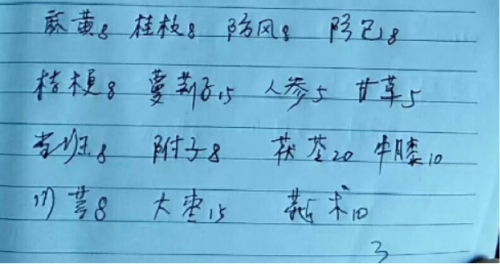 麻黄8 桂枝8 防风8 防己8
桔梗8 蔓荆子15 人参5 甘草5
当归8 附子8 茯苓20 牛膝10
川芎8 大枣15 莪术10
3